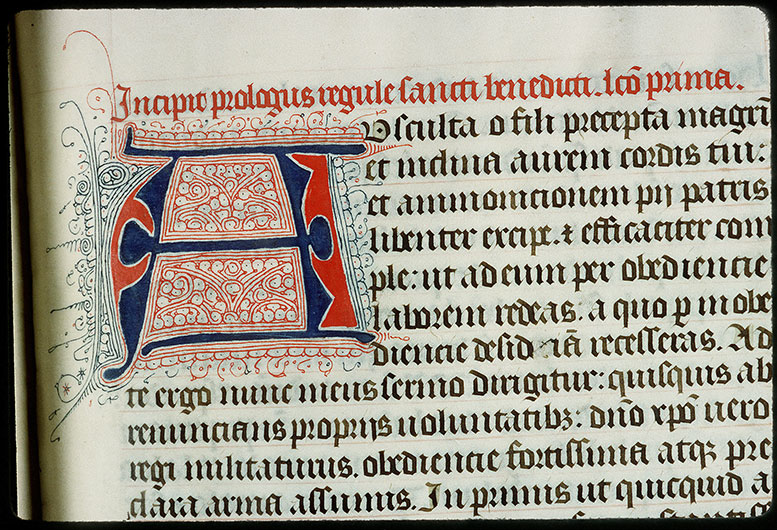 Incipit prologus regule sancti benedicti. lcō prima.
Ausculta o fili precepta magrī
et inclina aurem cordis tui:
et ammonicionem pij patris
libenter excipe. ⁊ efficaciter com
ple: ut ad eum per obediencie
laborem redeas. a quo p inobe
diencie desid iā recesseras. Ad
te ergo nunc meus sermo dirigitur: quisquis ab
renuncians proprijs uoluntatibꝫ: dn̄o xp̄o uero
regi militaturus. obediencie fortissima atqꝫ pre
clara arma assumis. In primis ut quicquid a